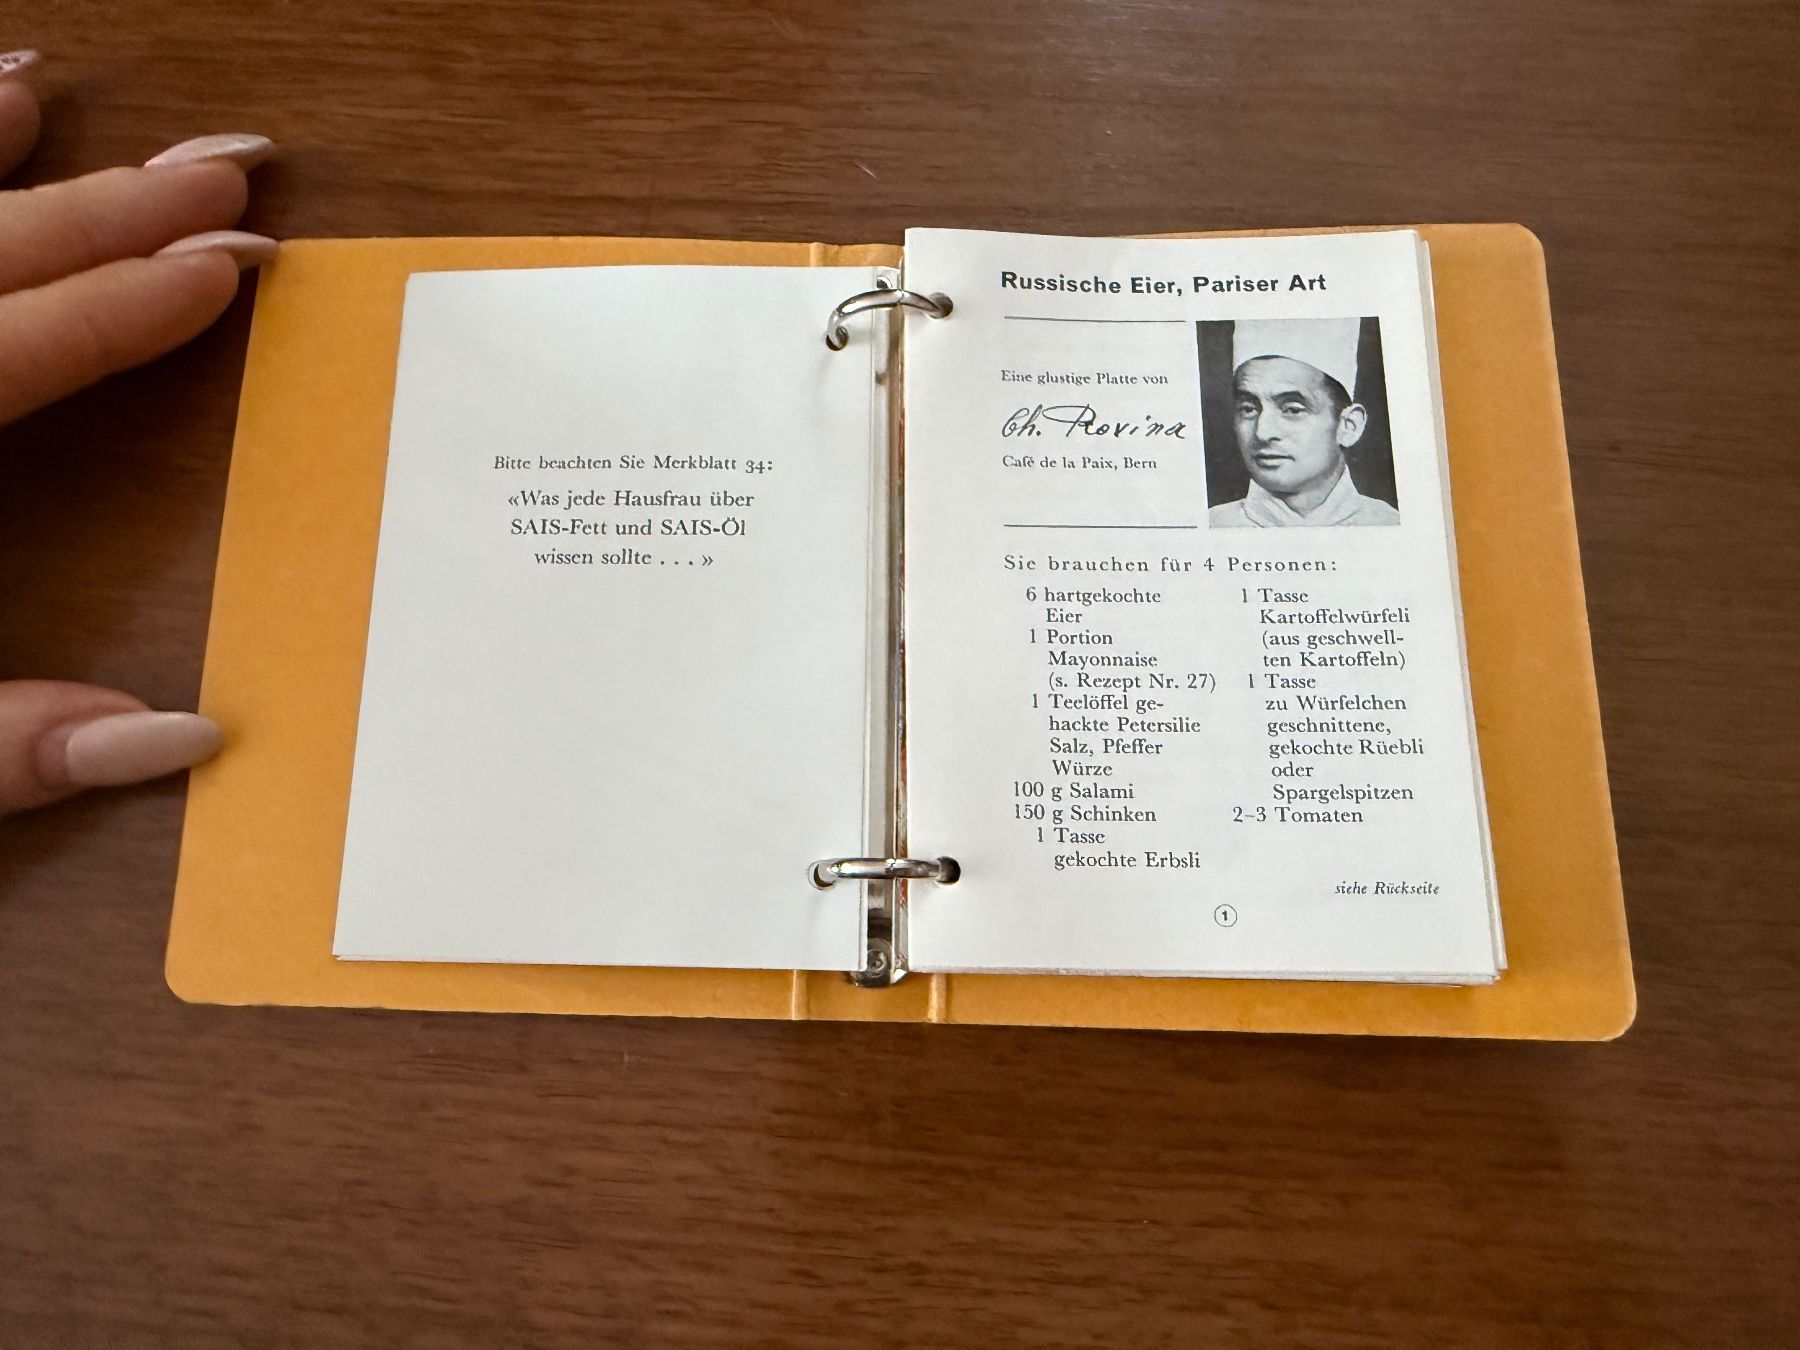 Bitte beachten Sie Merkblatt 34:
«Was jede Hausfrau über
SAIS-Fett und SAIS-Öl
wissen sollte . . . »
Russische Eier, Pariser Art
Eine glustige Platte von
Ch. Rovina
Café de la Paix, Bern
Sie brauchen für 4 Personen:
6 hartgekochte
Eier
1 Portion
Mayonnaise
(s. Rezept Nr. 27)
1 Teelöffel ge-
hackte Petersilie
Salz, Pfeffer
Würze
100 g Salami
150 g Schinken
1 Tasse
gekochte Erbsli
1 Tasse
Kartoffelwürfeli
(aus geschwell-
ten Kartoffeln)
1 Tasse
zu Würfelchen
geschnittene,
gekochte Rüebli
oder
Spargelspitzen
2–3 Tomaten
siehe Rückseite
1